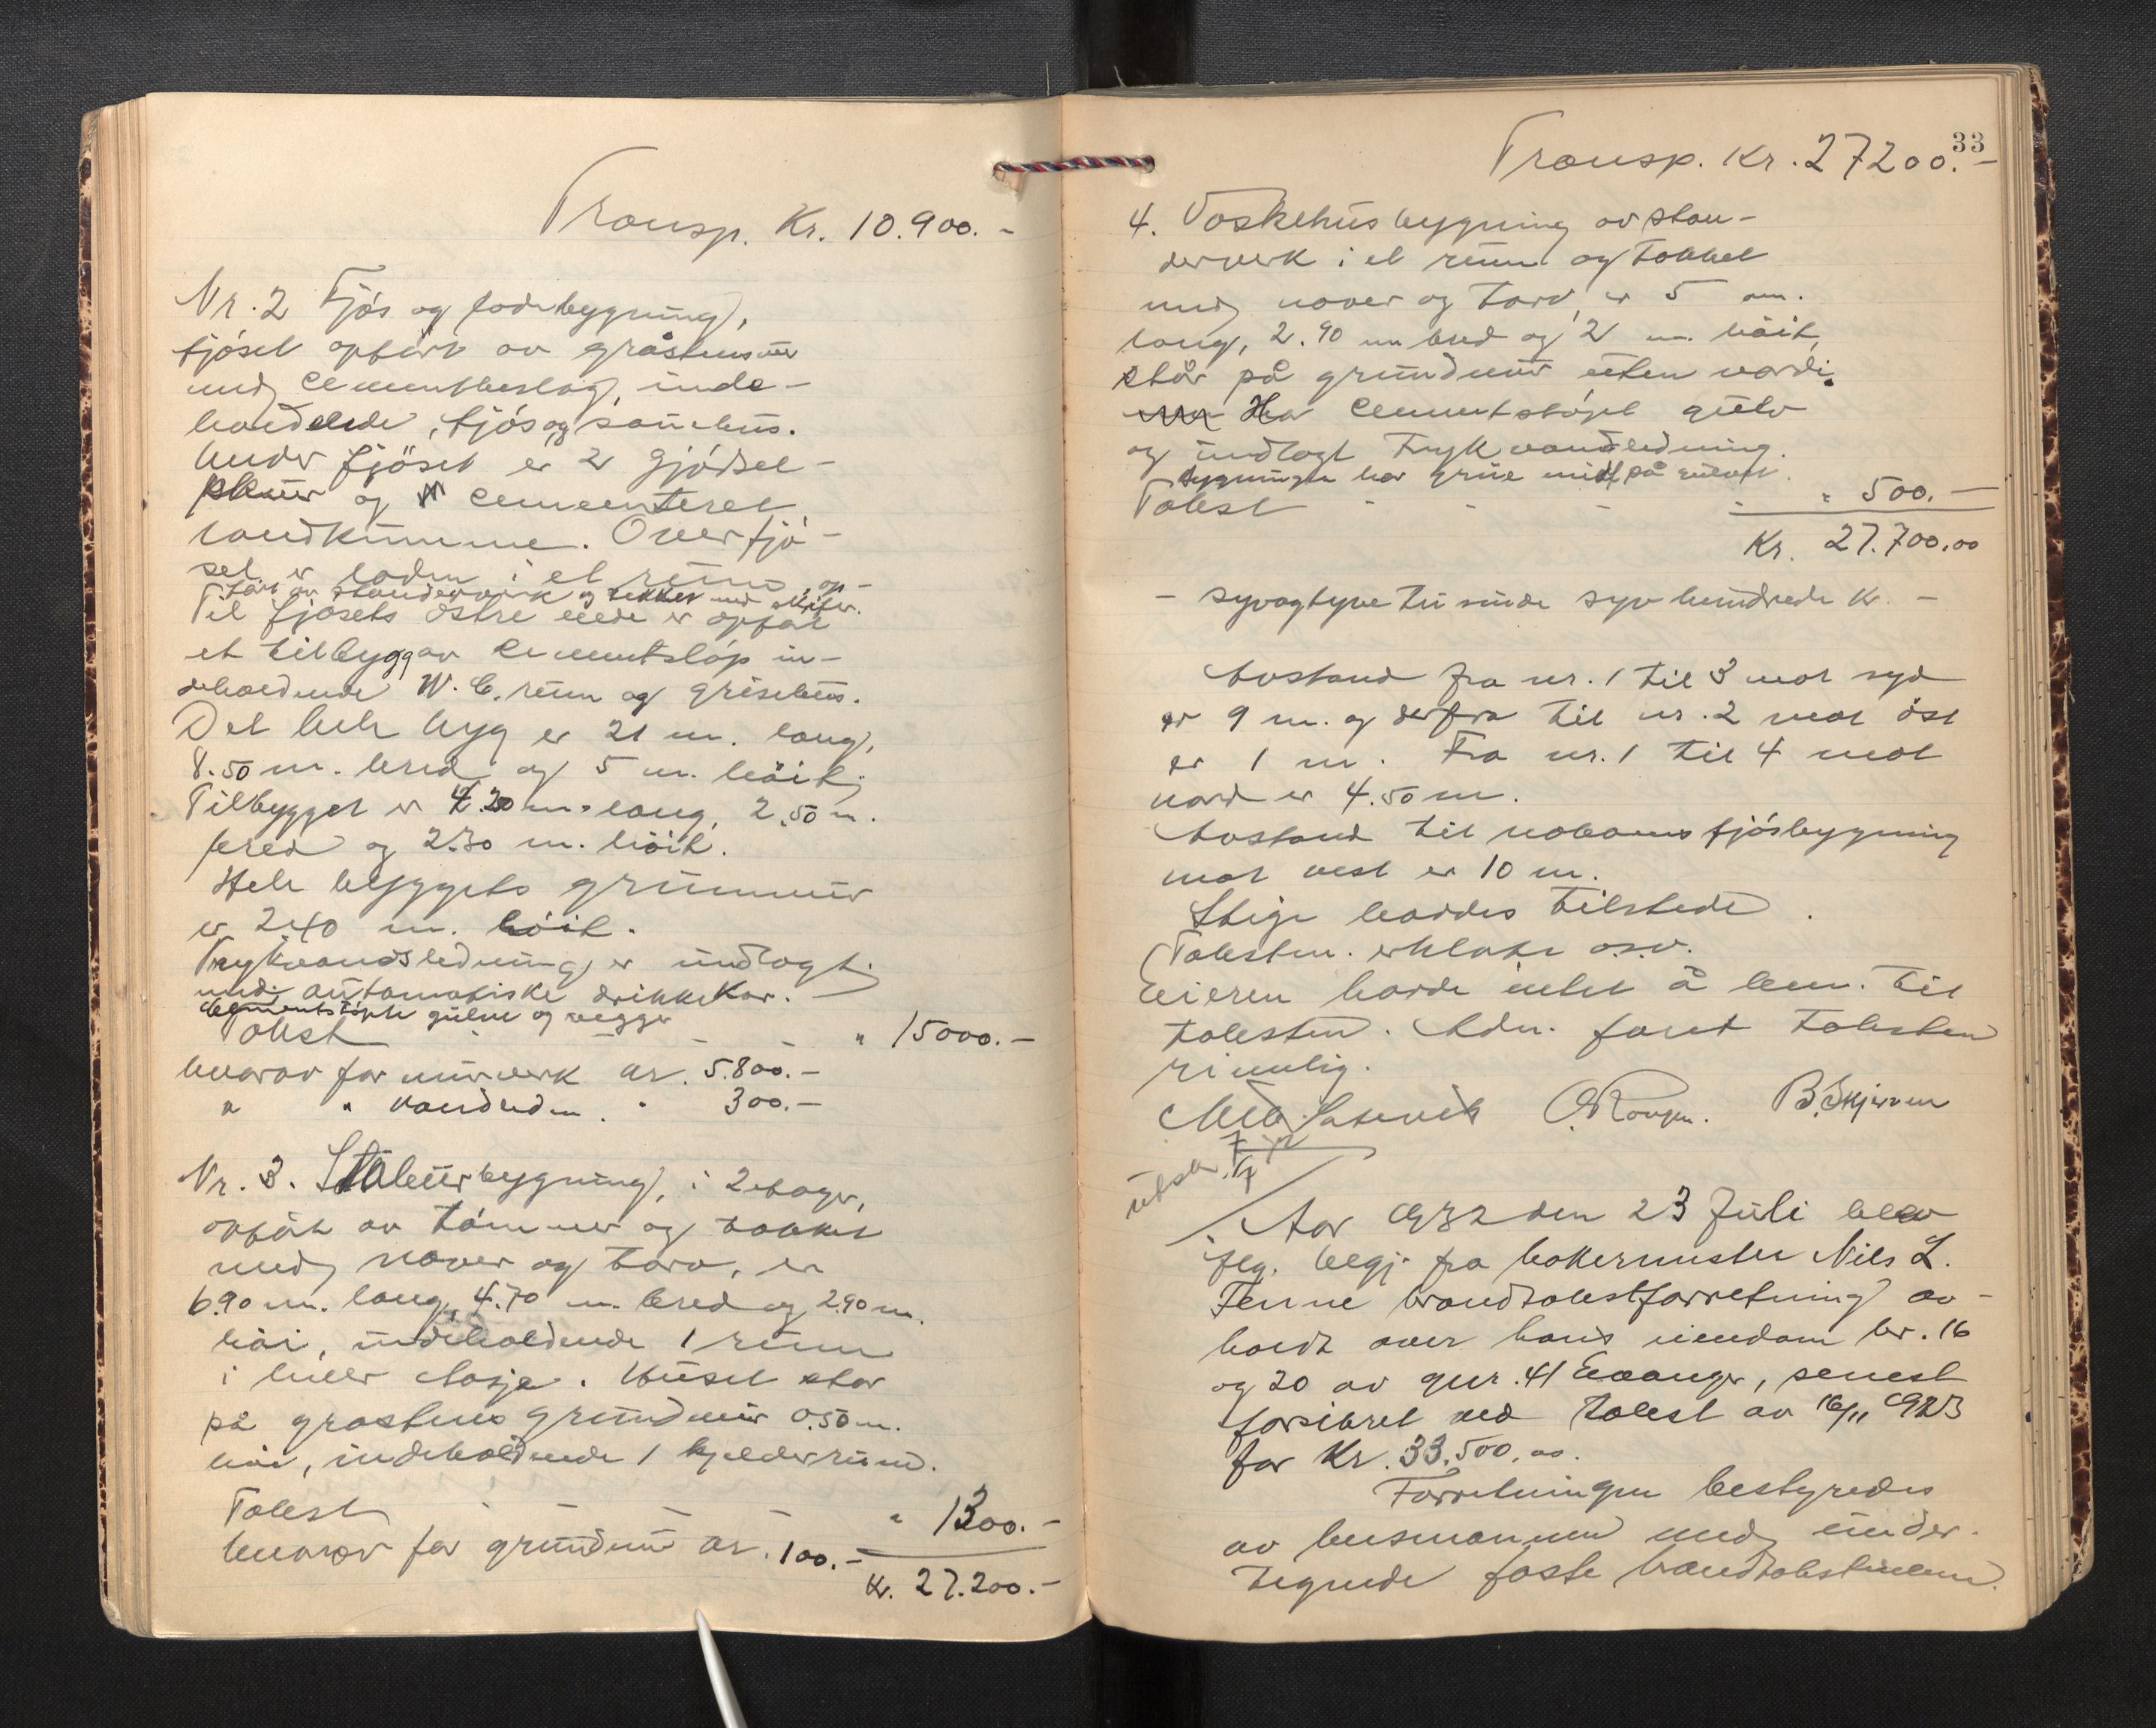 Transp. Kr. 10.900.-
Nr. 2 Fjøs og lodebygning,
fjøset opført av gråstensmur
med cementbeslag, inde-
holdende, fjøs og sauehus.
Under fjøset er 2 gjødsel-
og cementeret
landkumme. Over fjø-
set er laden i et rum, op-
ført av standerverk og tekket med skifer.
Til fjøsets østre ende er opført
et tilbygg av cementstøp in-
deholdende W.C. rum og grisehus.
Det hele byg er 21 m. lang,
8.50 m. bred og 5 m. høit,
Tilbygget er 4.20 m. lang, 2.50 m.
bred og 2.30 m. höit.
Hele byggets grunnmur
er 240 m. höit.
Trykvandsledning er indlagt
med automatiske drikkekar.
Cementstøpte gulve og vegger
Takst - - - " 15000.-
hvorav for murverk kr. 5.800.-
" " vandledn. " 300.-
Nr. 3. Stabursbygning, i 2 etager,
opført av tømmer og tekket
med never og torv, er
6.90 m. lang, 4.70 m. bred og 2.90 m.
høi, indeholdende 1 rum
i hver etasje. Huset står
på gråstens grundmur 0.50 m.
høi, indeholdende 1 kjelderrum.
Takst - - - - " 1300.-
hvorav for grundmur kr. 100.-
Kr. 27.200.-
33
Transp. Kr. 27200.-
4. Vaskehusbygning av stan-
derverk i et rum og tekket
med never og torv, er 5 m.
lang, 2.90 m bred og 2 m. høit,
står på grundmur uten verdi.
Har cementstøpt gulv
og indlagt trykvandledning.
Bygningen har grue midt på gulvet.
Takst - - - - " 500.-
Kr. 27.700.00
- syvogtyve tusinde syv hundrede kr. -
Avstand fra nr. 1 til 3 mot syd
er 9 m. og derfra til nr. 2 mot öst
er 1 m. Fra nr. 1 til 4 mot
nord er 4.50 m.
Avstand til naboens fjøsbygning
mot vest er 10 m.
Stige haddes tilstede.
Takstm. erklærte o.s.v.
Eieren hadde intet å bem. til
taksten. Adm. fandt taksten
rimelig.
O. Rongen. B. Skjerven
utskr. 7/9
Aar 1932 den 23 Juli blev
iflg. begj. fra bakermester Nils L.
Tenne brandtakstforretning av-
holdt over hans eiendom br. 16
og 20 av gnr. 41 Evanger, senest
forsikret ved takst av 16/11 1923
for Kr. 33.500.00.
Forretningen bestyredes
av lensmannen med under-
tegnede faste brandtakstmenn.